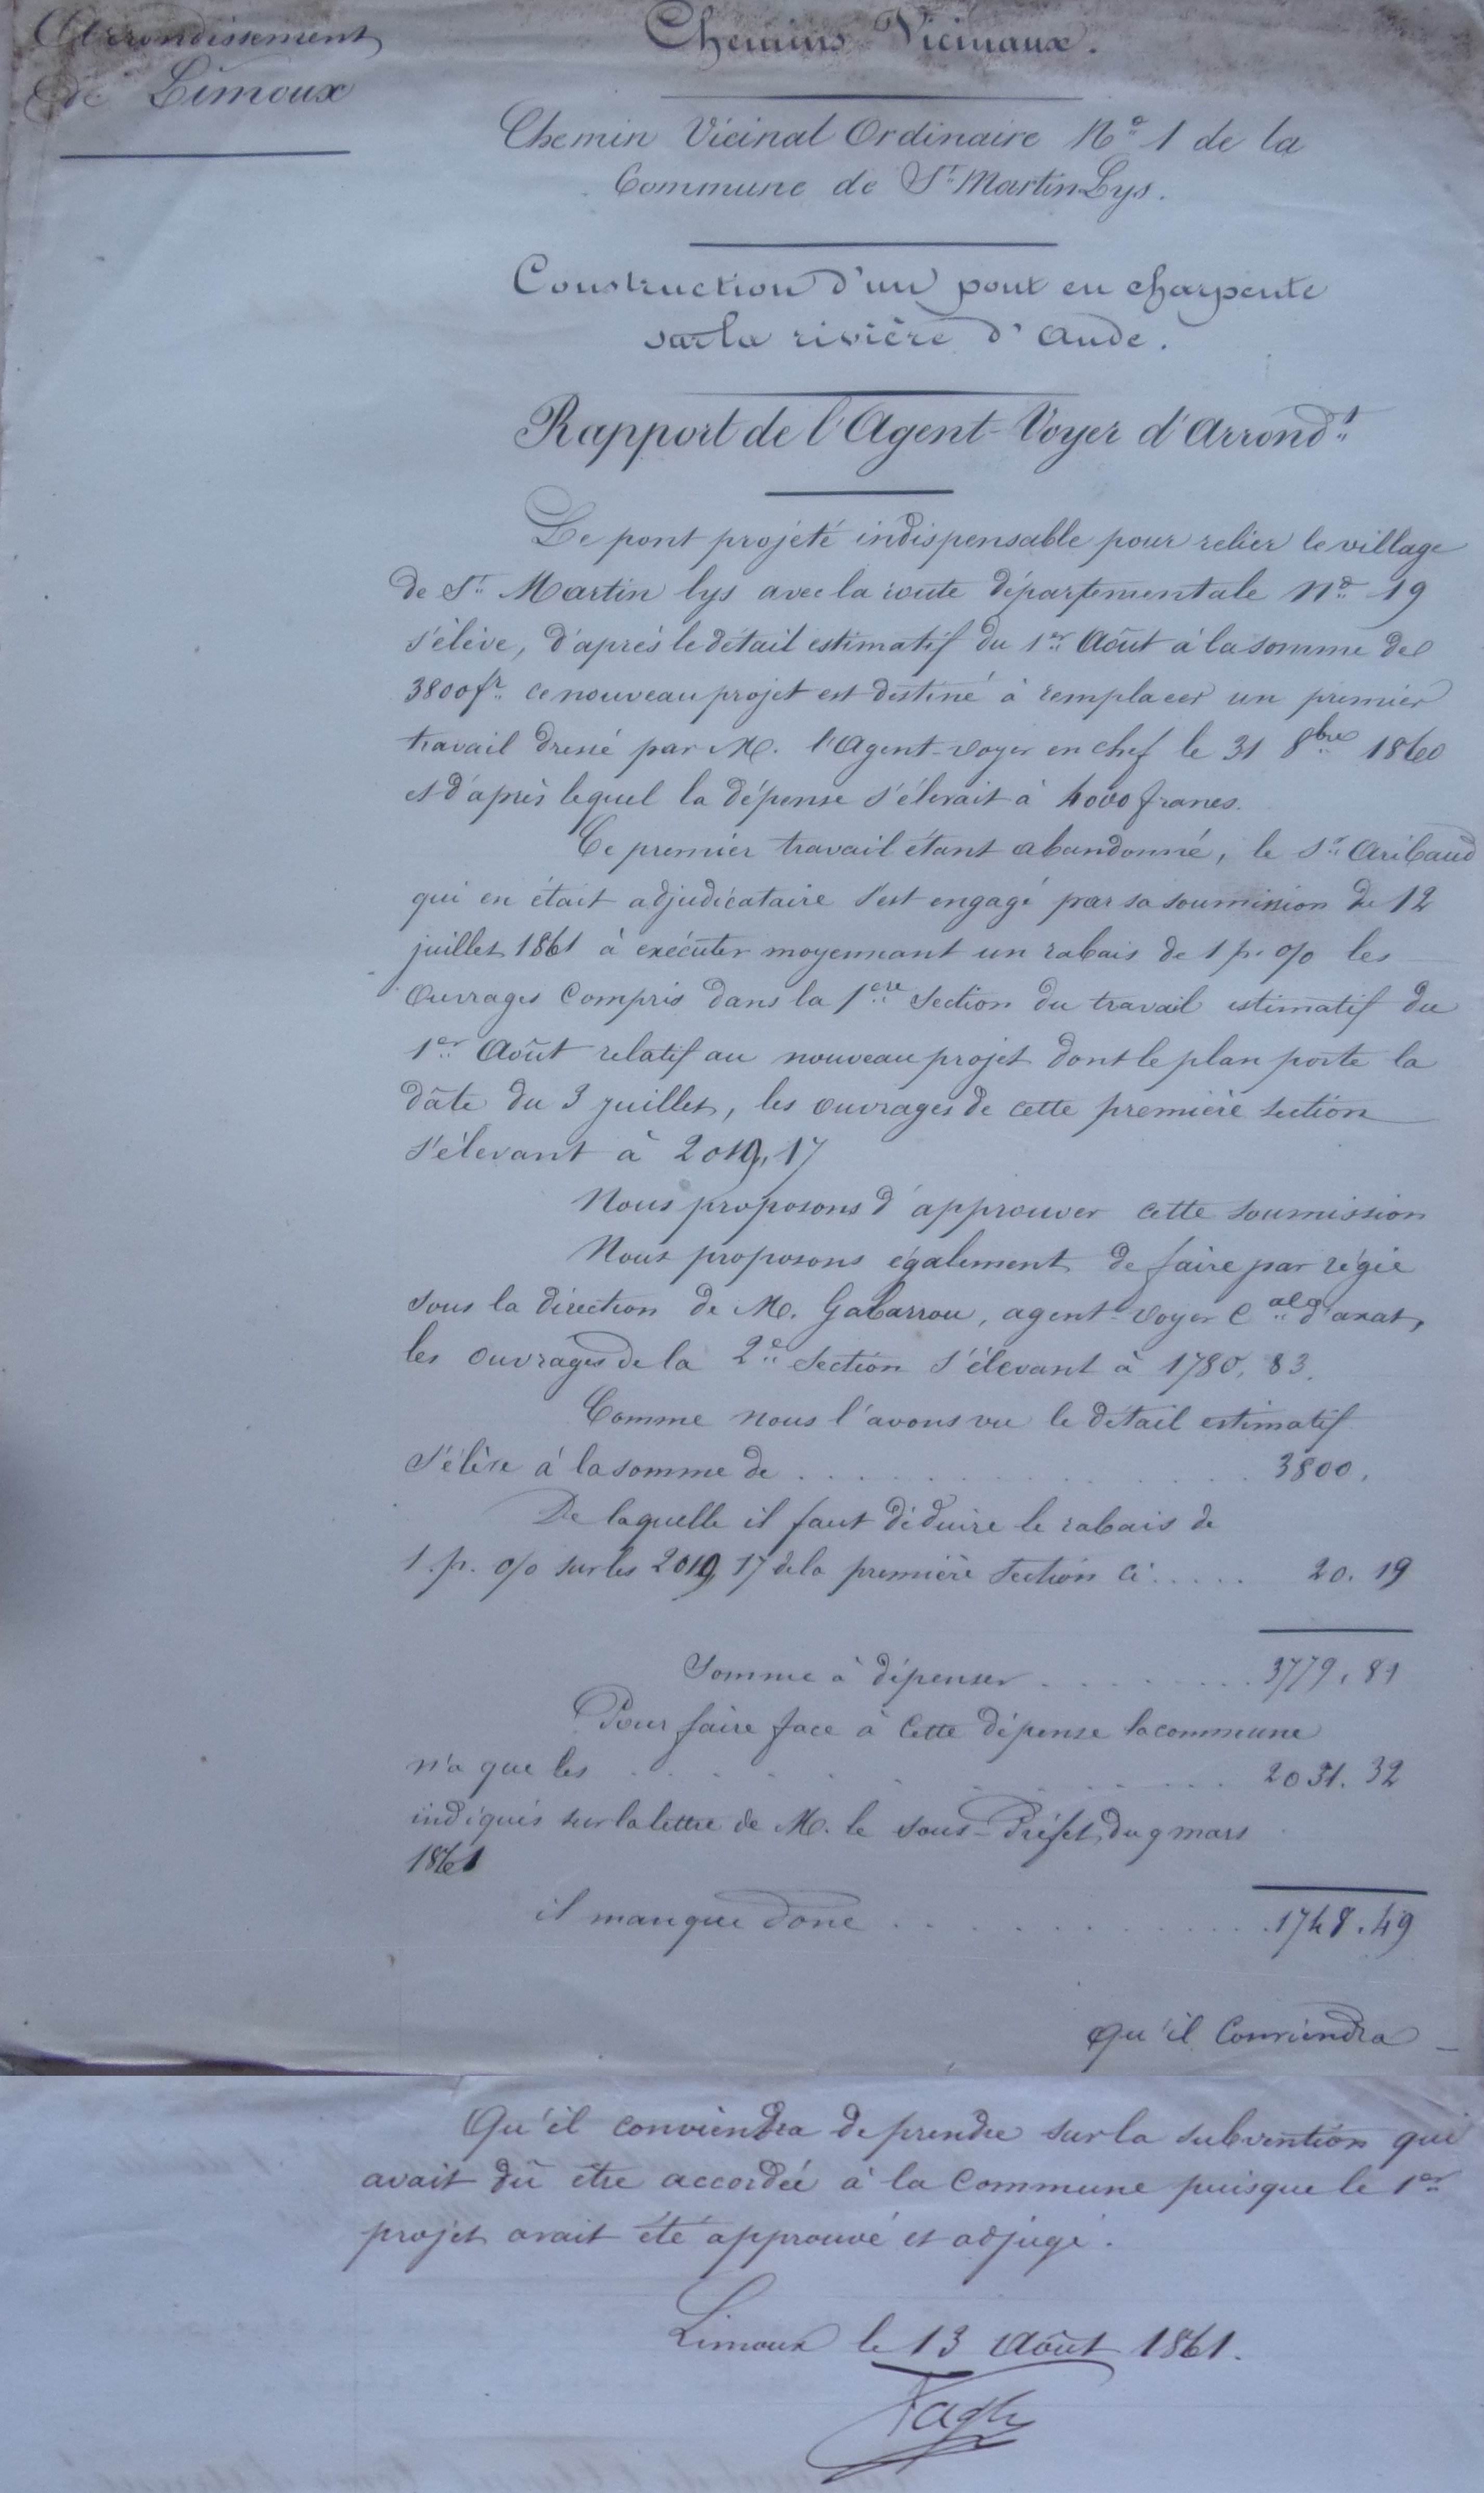 Arrondissement
de Limoux
Chemins Vicinaux.
Chemin Vicinal Ordinaire N° 1 de la
Commune de St Martin Lys.
Construction d'un pont en charpente
sur la rivière d'Aude.
Rapport de l'Agent-Voyer d'Arrondt
Le pont projété indispensable pour relier le village
de St Martin lys avec la route départementale No 19
s'élève, d'après le détail estimatif du 1er Août à la somme de
3800fr. ce nouveau projet est destiné à remplacer un premier
travail dressé par M. l'Agent-voyer en chef le 31 8bre 1860
et d'après lequel la dépense s'élevait à 4000 francs.
Ce premier travail étant abandonné, le Sr Aribaud
qui en était adjudicataire s'est engagé par sa soumission du 12
juillet 1861 à exécuter moyennant un rabais de 1 p. % les
Ouvrages Compris dans la 1ère Section du travail estimatif du
1er Août relatif au nouveau projet dont le plan porte la
dâte du 3 juillet, les ouvrages de cette première section
s'élevant à 2019,17
Nous proposons d'approuver cette soumission
Nous proposons également de faire par régie
sous la direction de M. Gabarrou, agent-voyer Cal d'axat,
les ouvrages de la 2e Section s'élevant à 1780,83.
Comme nous l'avons vu le détail estimatif
s'élève à la somme de . . . . . . . . . . . . 3800.
De laquelle il faut déduire le rabais de
1.p. % sur les 2019,17 de la première Section ci . . . . . 20.19
Somme à dépenser . . . . . . . . . 3779.81
Pour faire face à Cette dépense la commune
n'a que les . . . . . . . . . . . . 2031.32
indiqués sur la lettre de M. le sous-Préfet du 9 mars
1861
il manque donc . . . . . . . . . . . . 1748.49
qu'il Conviendra
Qu'il conviendra de prendre sur la subvention qui
avait dû être accordée à la Commune puisque le 1er
projet avait été approuvé et adjugé.
Limoux le 13 Août 1861.